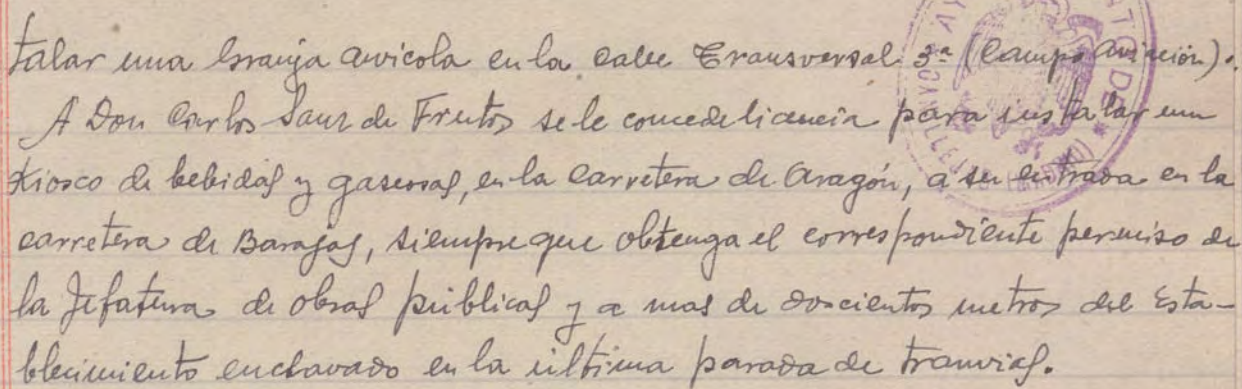 talar una Granja avicola en la calle Transversal 3ª (Campo Aviación).
A Don Carlos Sanz de Frutos se le concede licencia para instalar un
Kiosco de bebidas y gaseosas, en la Carretera de Aragón, a su entrada en la
carretera de Barajas, siempre que obtenga el correspondiente permiso de
la Jefatura de obras públicas y a mas de doscientos metros del Esta-
blecimiento enclavado en la última parada de tranvias.